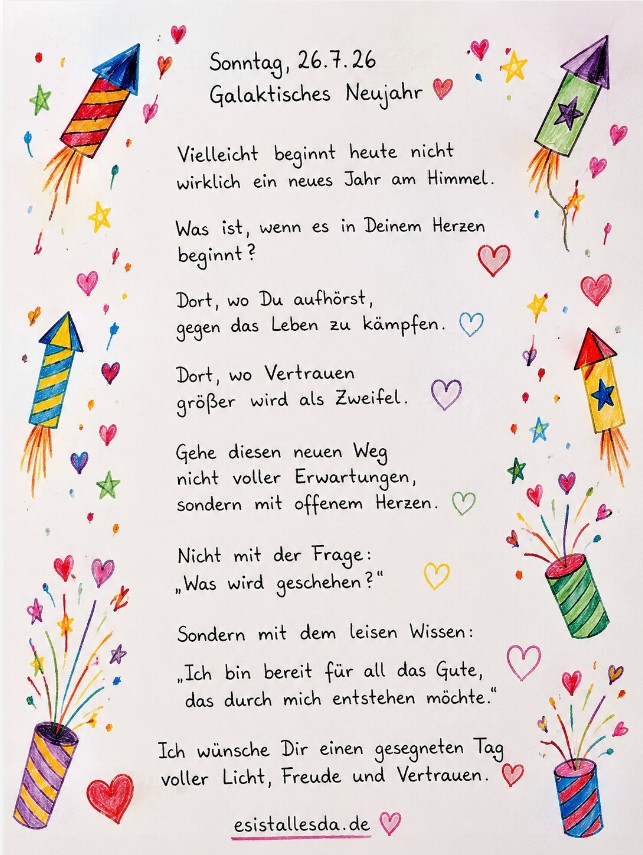 Sonntag, 26.7.26
Galaktisches Neujahr
Vielleicht beginnt heute nicht
wirklich ein neues Jahr am Himmel.
Was ist, wenn es in Deinem Herzen
beginnt?
Dort, wo Du aufhörst,
gegen das Leben zu kämpfen.
Dort, wo Vertrauen
größer wird als Zweifel.
Gehe diesen neuen Weg
nicht voller Erwartungen,
sondern mit offenem Herzen.
Nicht mit der Frage:
„Was wird geschehen?“
Sondern mit dem leisen Wissen:
„Ich bin bereit für all das Gute,
das durch mich entstehen möchte.“
Ich wünsche Dir einen gesegneten Tag
voller Licht, Freude und Vertrauen.
esistallesda.de